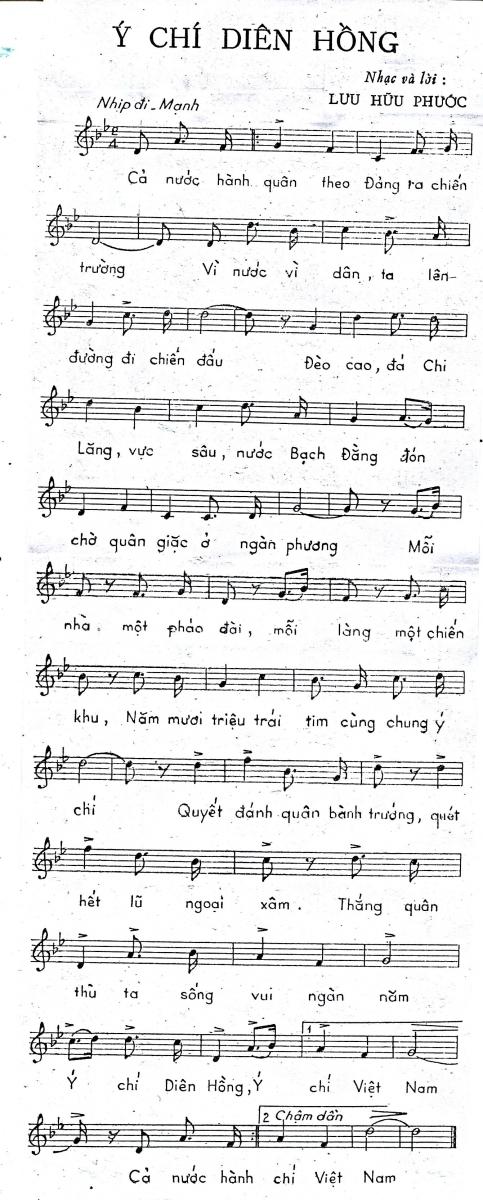 Ý CHÍ DIÊN HỒNG
Nhạc và lời :
LƯU HỮU PHƯỚC
Nhịp đi - Mạnh
Cả nước hành quân theo Đảng ra chiến
trường Vì nước vì dân, ta lên-
đường đi chiến đấu Đèo cao, đá Chi
Lăng, vực sâu, nước Bạch Đằng đón
chờ quân giặc ở ngàn phương Mỗi
nhà một pháo đài, mỗi làng một chiến
khu, Năm mươi triệu trái tim cùng chung ý
chí Quyết đánh quân bành trướng, quét
hết lũ ngoại xâm. Thắng quân
thù ta sống vui ngàn năm
1
Ý chí Diên Hồng, Ý chí Việt Nam
2 Chậm dần
Cả nước hành chí Việt Nam